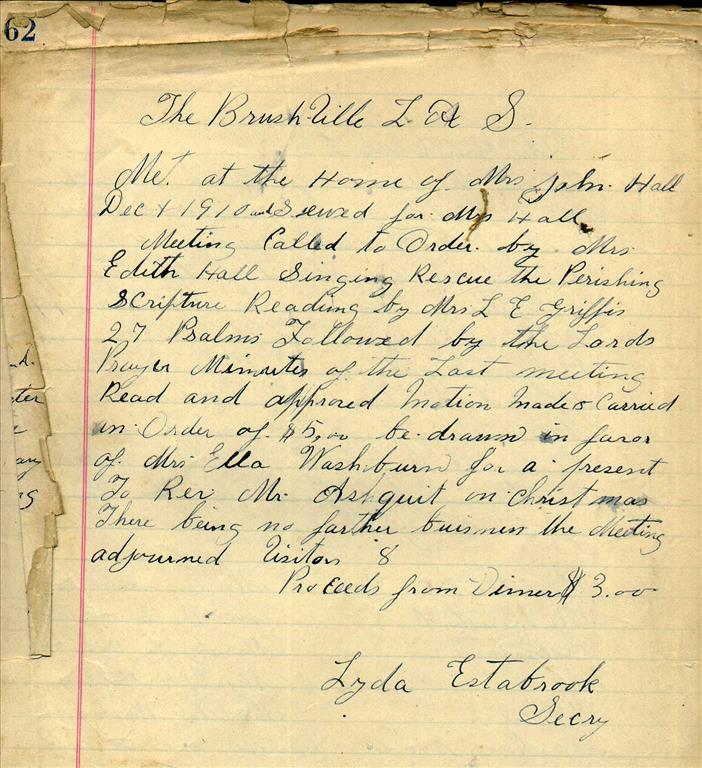 62
The Brushville L A S.
Met at the Home of Mrs John Hall
Dec 1 1910 and Sewed for Mrs Hall
Meeting Called to Order by Mrs
Edith Hall Singing Rescue the Perishing
Scripture Reading by Mrs L E Griffis
27 Psalms Followed by the Lords
Prayer Minutes of the Last meeting
Read and approved Motion Made & Carried
an Order of $5,00 be drawn in favor
of Mrs Ella Washburn for a present
To Rev Mr. Asquit on Christmas
There being no farther buisness the Meeting
adjourned Visitors 8
Proceeds from Dinner $3.00
Lyda Estabrook
Secry